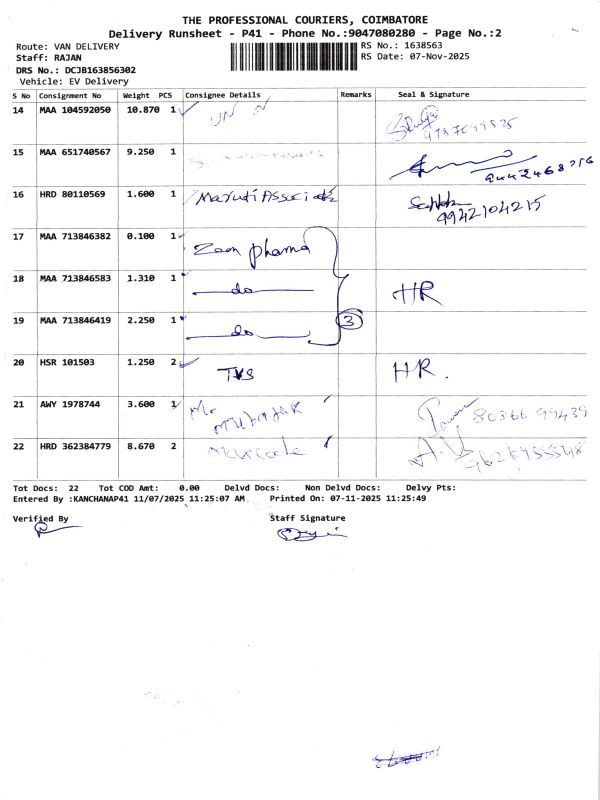 THE PROFESSIONAL COURIERS, COIMBATORE
Delivery Runsheet - P41 - Phone No.:9047080280 - Page No.:2
Route: VAN DELIVERY
RS No.: 1638563
Staff: RAJAN
RS Date: 07-Nov-2025
DRS No.: DCJB163856302
Vehicle: EV Delivery
S No Consignment No Weight PCS Consignee Details Remarks Seal & Signature
14 MAA 104592050 10.870 1
15 MAA 651740567 9.250 1
16 HRD 80110569 1.600 1 Maruti Associates
9942104215
17 MAA 713846382 0.100 1 Zoom pharma
18 MAA 713846583 1.310 1 do HR
19 MAA 713846419 2.250 1 do 3
20 HSR 101503 1.250 2 TVS HR.
21 AWY 1978744 3.600 1 Mr
22 HRD 362384779 8.670 2
Tot Docs: 22 Tot COD Amt: 0.00 Delvd Docs: Non Delvd Docs: Delvy Pts:
Entered By :KANCHANAP41 11/07/2025 11:25:07 AM Printed On: 07-11-2025 11:25:49
Verified By Staff Signature